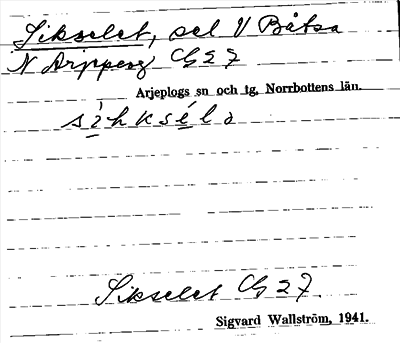 Sikselet, sel V Båtsa
N Arjpperg Cg 27
Arjeplogs sn och tg. Norrbottens län.
sìhkséla
Sikselet Cg 27.
Sigvard Wallström, 1941.